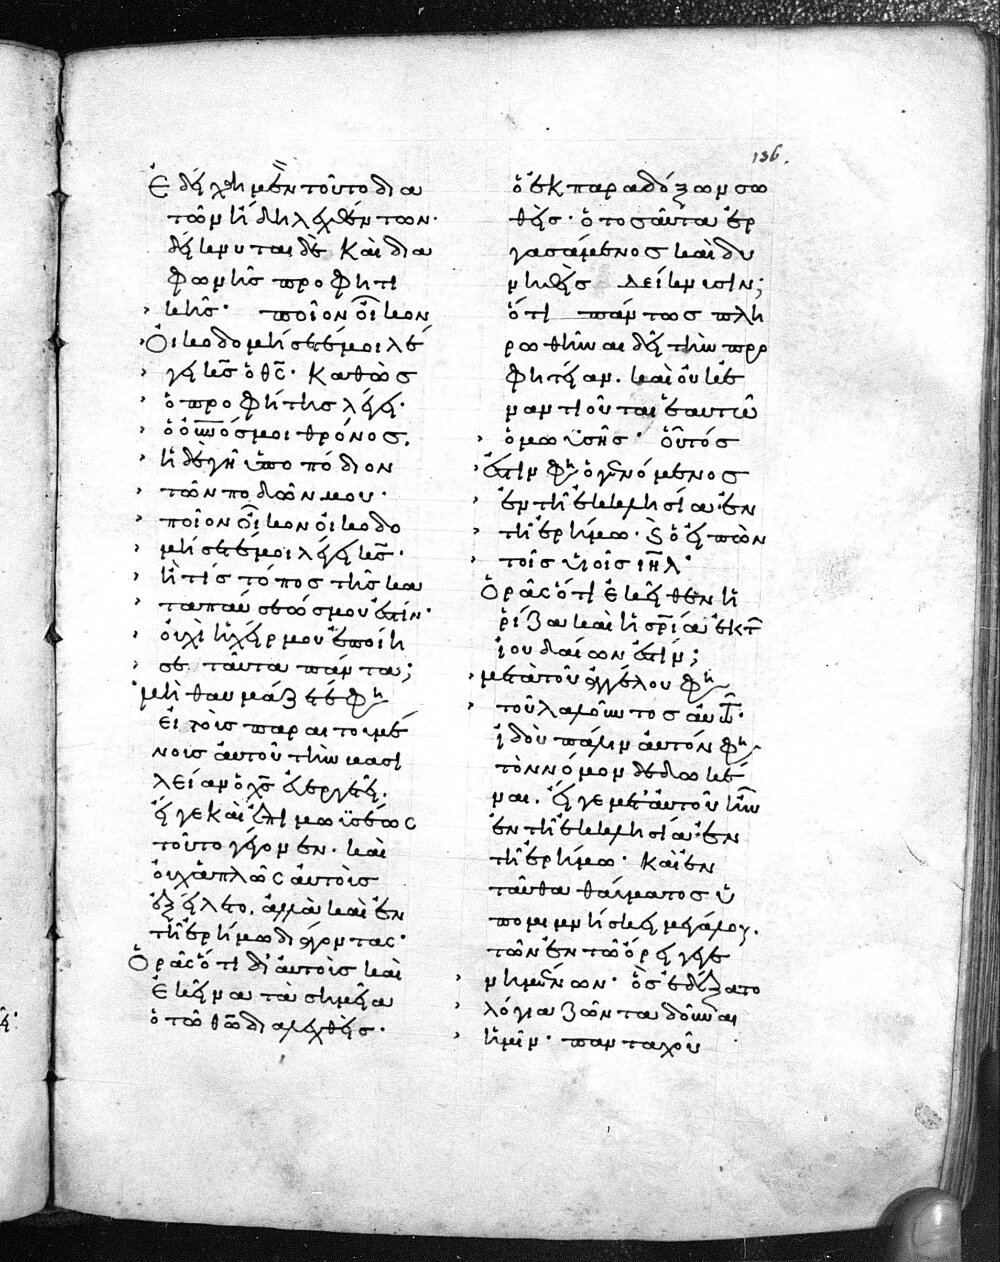 136.
Ἐδείχθη μὲν τοῦτο δια
τῶν ἤδη λεχθέντων·
δείκνυται δὲ καὶ δια
φωνῆς προφητι
κῆς· ποῖον οἶκον
Οἰκοδομήσετέ μοι λέ
γει κ̅ς̅ ὁ θ̅ς̅· Καθὼς
ὁ προφήτης λέγει·
ὁ ο̅υ̅ν̅ό̅ς μοι θρόνος.
ἡ δὲ γῆ ὑποπόδιον
τῶν ποδῶν μου·
ποῖον οἶκον οἰκοδο
μήσετέ μοι λέγει κ̅ς̅·
ἢ τίς τόπος τῆς κα
ταπαύσεώς μου ἐστίν·
οὐχὶ ἡ χείρ μου ἐποίη
σε ταῦτα πάντα;
μὴ θαυμάζετέ φη
εἰ τοὺς παραιτουμέ
νους αὐτοῦ τὴν βασι
λείαν ὁ χ̅ς̅ εὐεργετεῖ.
εἴγε καὶ ἐπὶ μωϋσέως
τοῦτο γέγονεν· καὶ
οὐχ ἁπλῶς αὐτοὺς
ἐξείλετο. ἀλλὰ καὶ ἐν
τῇ ἐρήμω διάγοντας·
Ὁρᾶς ὅτι δι' αὐτοὺς καὶ
ἐκεῖνα τὰ σημεῖα
ὁ τῶ θ̅ῶ̅ διαλεχθεὶς·
ὁ ἐκ παραδόξων σω
θεὶς· ὁ τοσαῦτα ἐρ
γασάμενος καὶ δυ
νηθεὶς λείκνυσιν;
ὅτι πάντως πλη
ρωθῆναι δεῖ τὴν προ
φητείαν. καὶ οὐκ ἐ
ναντιοῦται ἑαυτῶ
ὁ μωϋσῆς· οὗτός
ἐστιν φη ὁ γενόμενος
ἐν τῇ ἐκκλησία ἐν
τῇ ἐρήμω· καὶ ὁ εἰπὼν
τοῖς υἱοῖς ι̅η̅λ̅·
Ὁρᾶς ὅτι ἐκεῖθεν ἡ
ῥίζα καὶ ἡ σ̅ρ̅ία ἐκ τ
ἰουδαίων ἐστίν;
μετὰ τοῦ ἀγγέλου φη
τοῦ λαλοῦντος αὐτῶ·
ἰδοὺ πάλιν αὐτόν φη
τὸν νόμον δεδωκέ
ναι. εἴγε μετ' αὐτοῦ ἦν
ἐν τῇ ἐκκλησία ἐν
τῇ ἐρήμω· καὶ ἐν
ταῦθα θαύματος ὑ
πομιμνήσκει μεγάλου.
τῶν ἐν τῶ ὄρει γεγε
νημένων· ὃς ἐδέξατο
λόγια ζῶντα δοῦναι
ἡμῖν· πανταχοῦ